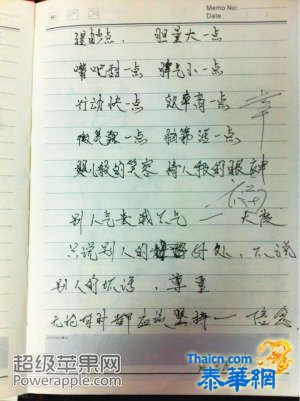 Memo No:
Date
胆量大一点
嘴吧甜一点 脾气小一点
行动快一点 效率高一点
微笑 一点 脑筋活一点
婴儿般的笑容 待人般的眼神
别人气 我不气 — 大度
只说别人的 好处，不说
别人的坏话，尊重
无论何时都应该坚持 — 信念
超级苹果网
Powerapple.com
Thaicn.com
泰華網